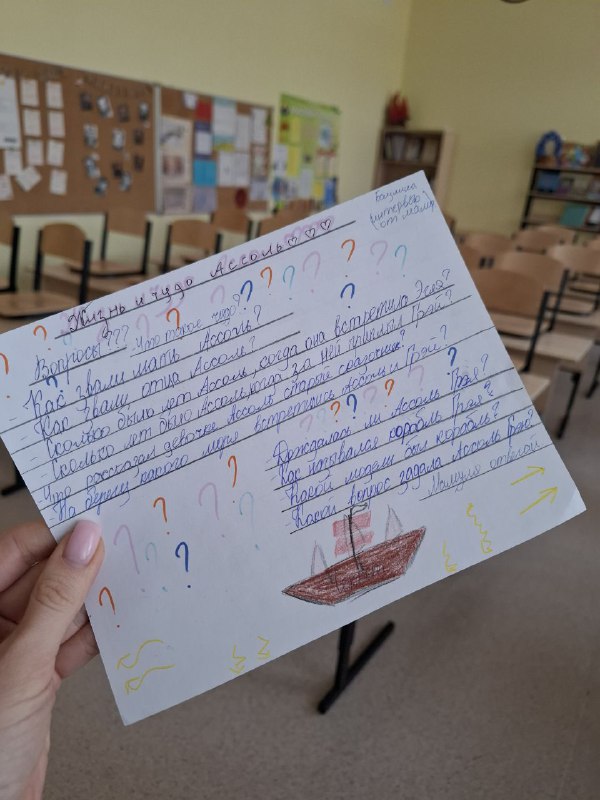 Жизнь и чудо Ассоль ♡♡♡
интервью
от мамы
Вопросы??? Что такое чудо?
Как звали мать Ассоль?
Как звали отца Ассоль?
- Сколько было лет Ассоль, когда она встретила Эгля?
- Сколько лет было Ассоль, когда за ней приплыл Грэй?
- Что рассказал девочке Ассоль старый сказочник?
- На берегу какого моря встретились Ассоль и Грэй?
- Дождалась ли Ассоль Грэя?
- Как назывался корабль Грэя?
- Какой модели был корабль?
- Какой вопрос задала Ассоль Грэю?
Мамуля отвечай